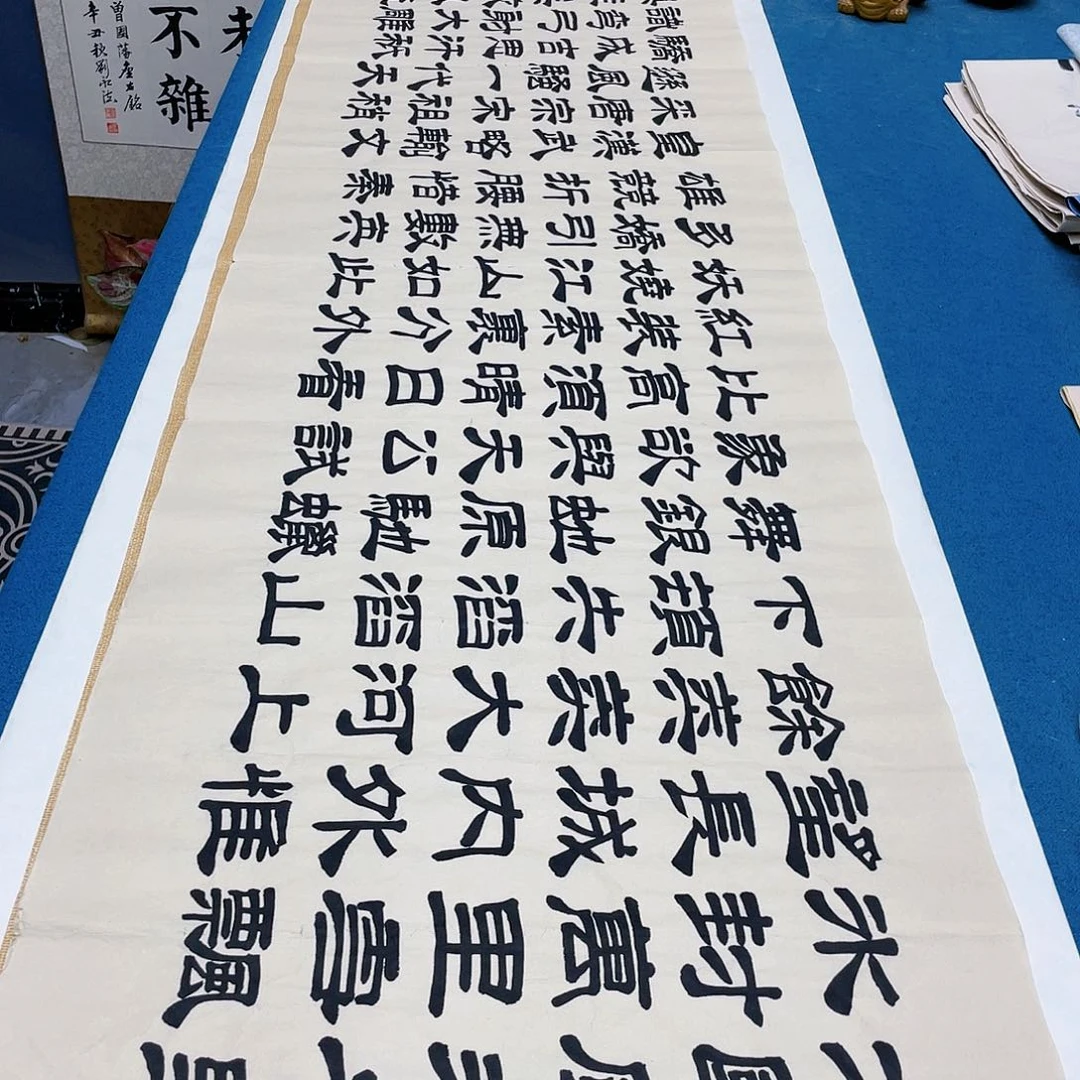 冰封萬里雪飄
望長城內外惟
餘莽莽大河上
下頓失滔滔山
舞銀虵原馳蠟
象欲與天公試
比高須晴日看
紅裝素裹分外
妖嬈江山如此
多嬌引無數英
雄競折腰惜秦
皇漢武略輸文
采唐宗宋祖稍
遜風騷一代天
驕成吉思汗秖
識彎弓射大雕
未
不雜
曾國藩座右銘
辛丑秋劉